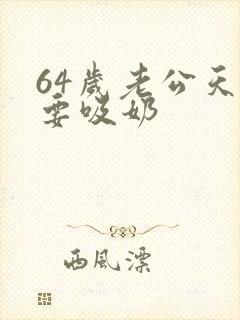 64歲老公天
要吸奶
西風漂